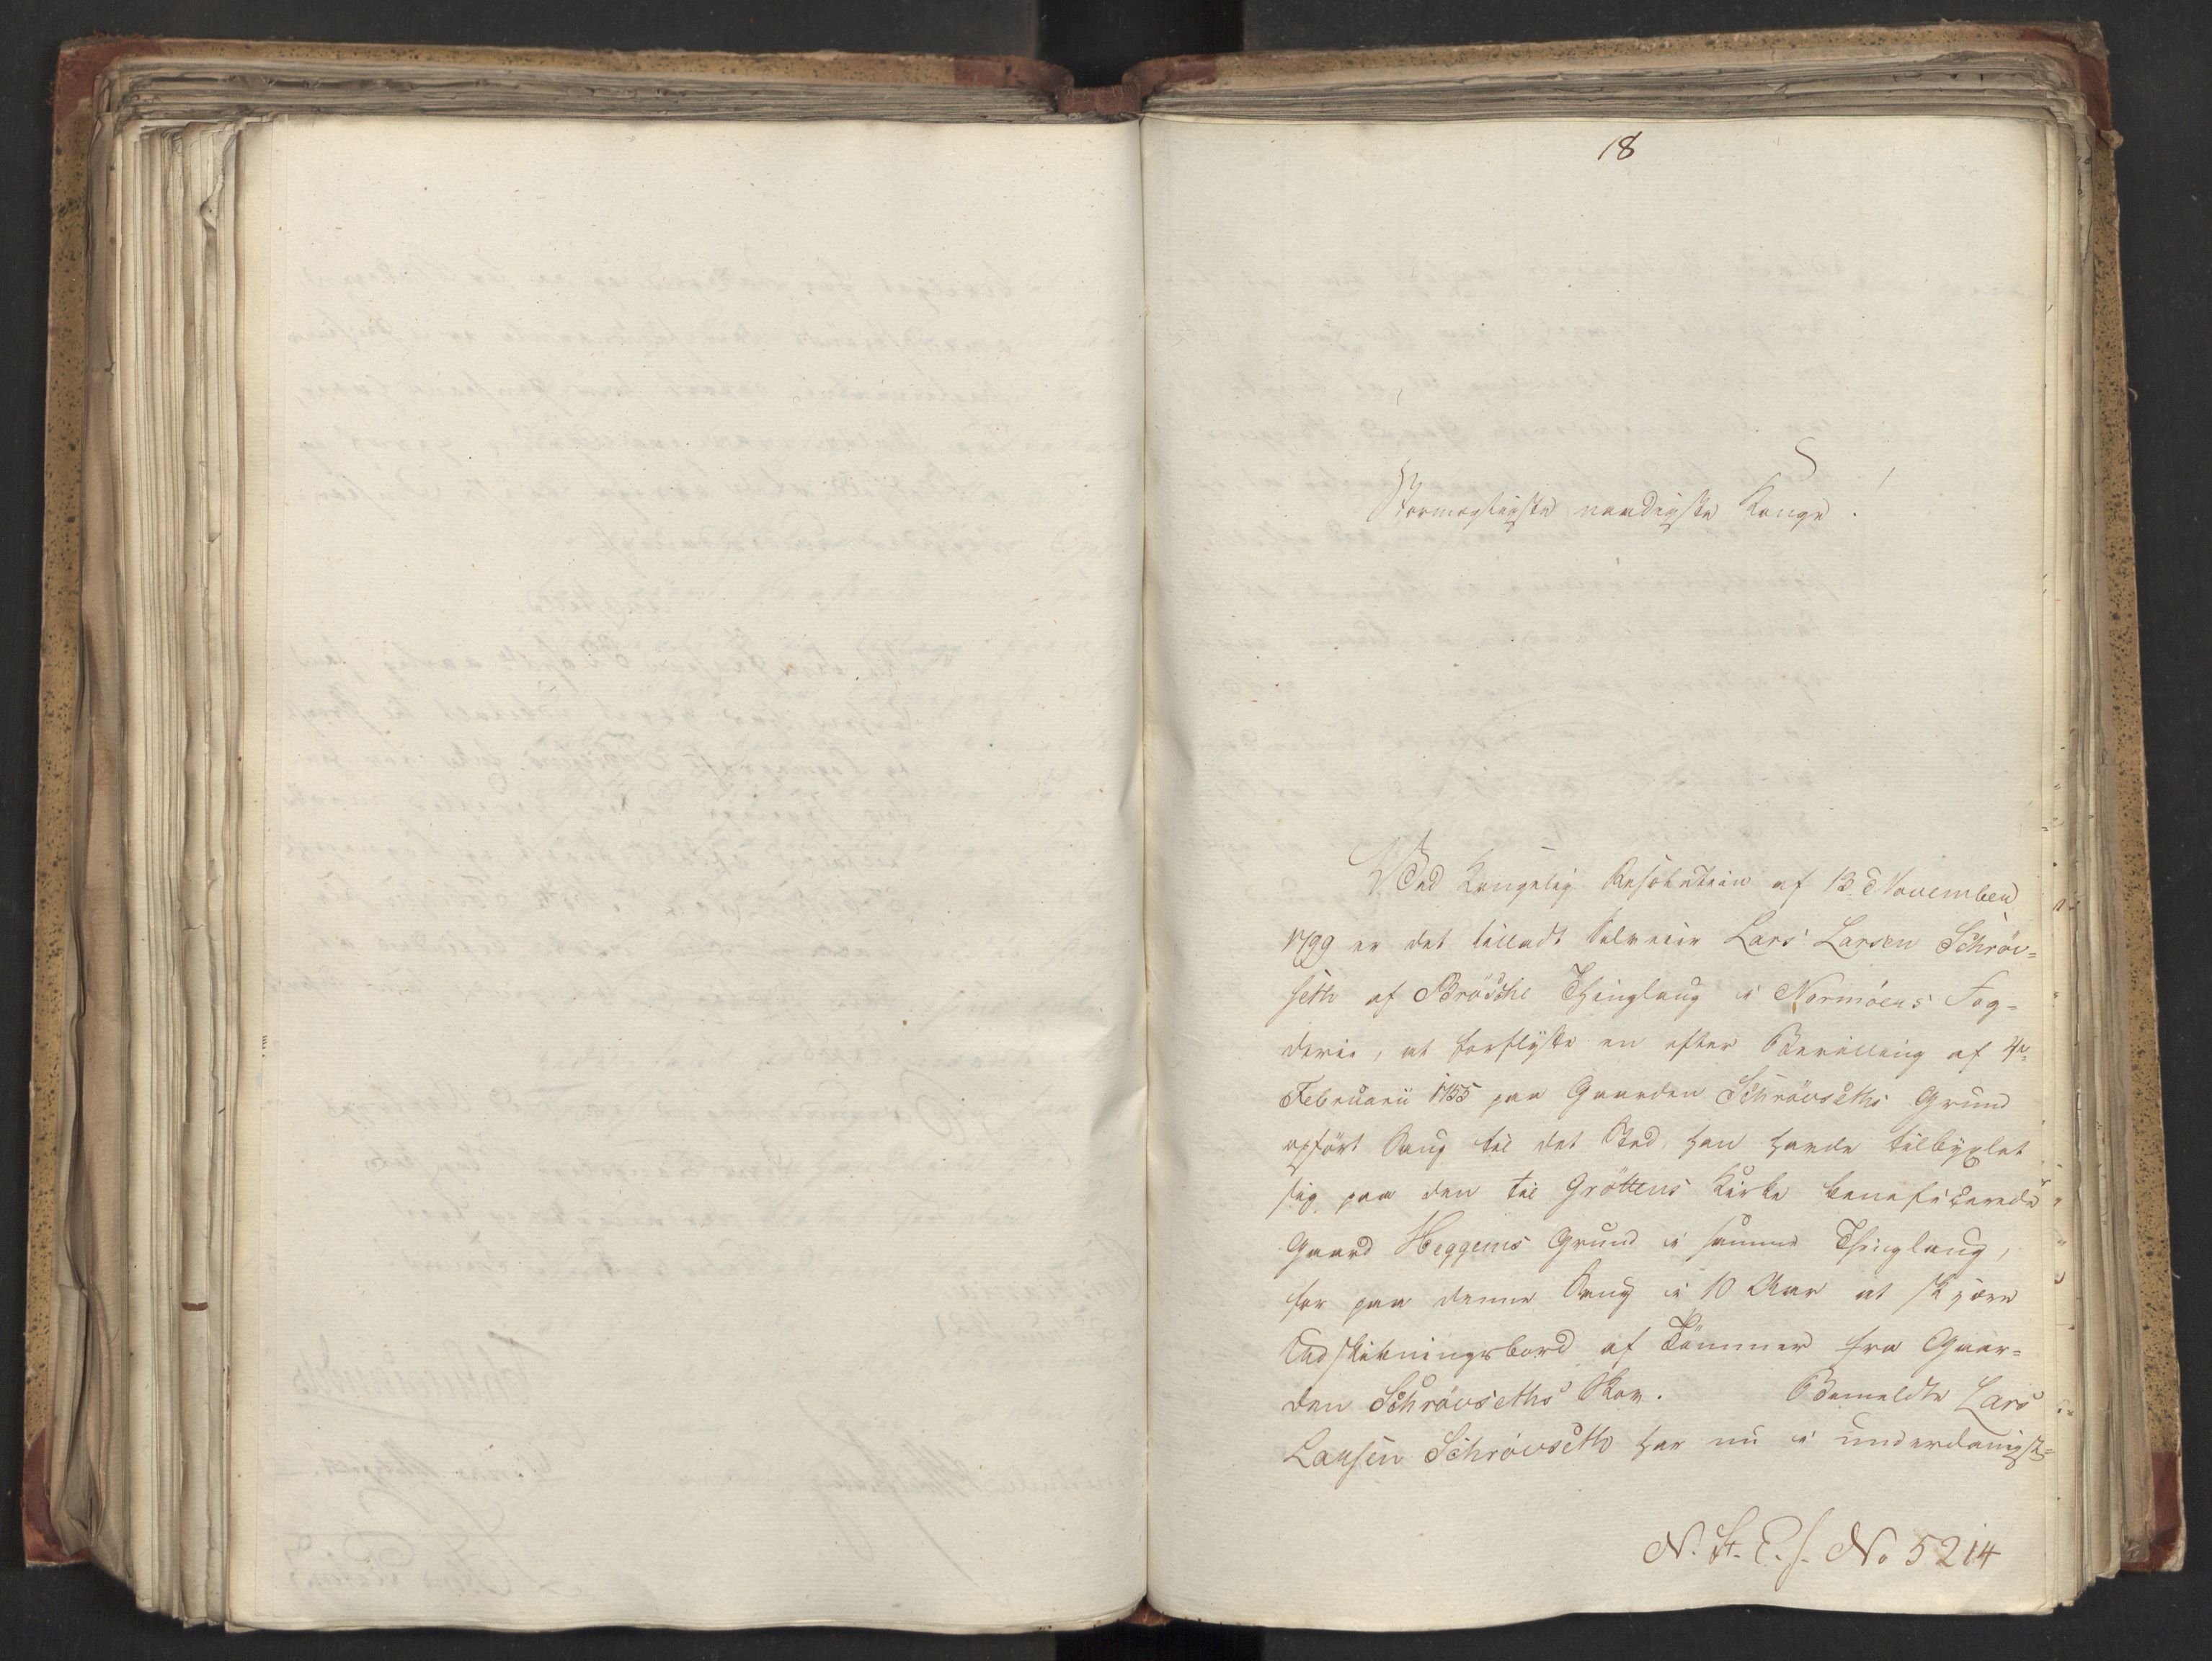 18
Stormægtigste naadigste Konge!
Ved Kongelig Resolution af 13 November
1799 er det tilladt Selveier Lars Larsen Schröv-
seth af Brösche Thinglaug i Normöens Fog-
derie, at forflytte en efter Bevilling af 4de
Februarii 1755 paa Gaarden Schrövseths Grund
opfört Saug til det Sted, han havde tilbyxlet
sig paa den til Gröttens Kirke beneficerede
Gaard Heggems Grund i samme Thinglaug,
for paa denne Saug i 10 Aar at skjære
Udskibningsbord af Tömmer fra Gaar-
den Schrövseths Skov. Bemeldte Lars
Larsen Schrövseth har nu i underdanigst-
N. St. E. s. No 5214